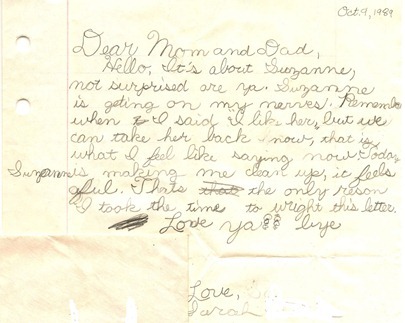 Oct. 9, 1989
Dear Mom and Dad,
Hello, It's about Suzanne,
not surprised are ya. Suzanne
is geting on my nerves. Remember
when I said "I like her," but we
can take her back now, that is
what I feel like saying now. Today
Suzanne is making me clean up, it feels
afful. Thats the only reson
I took the time to wright this letter.
Love ya!! bye
Love,
Sarah